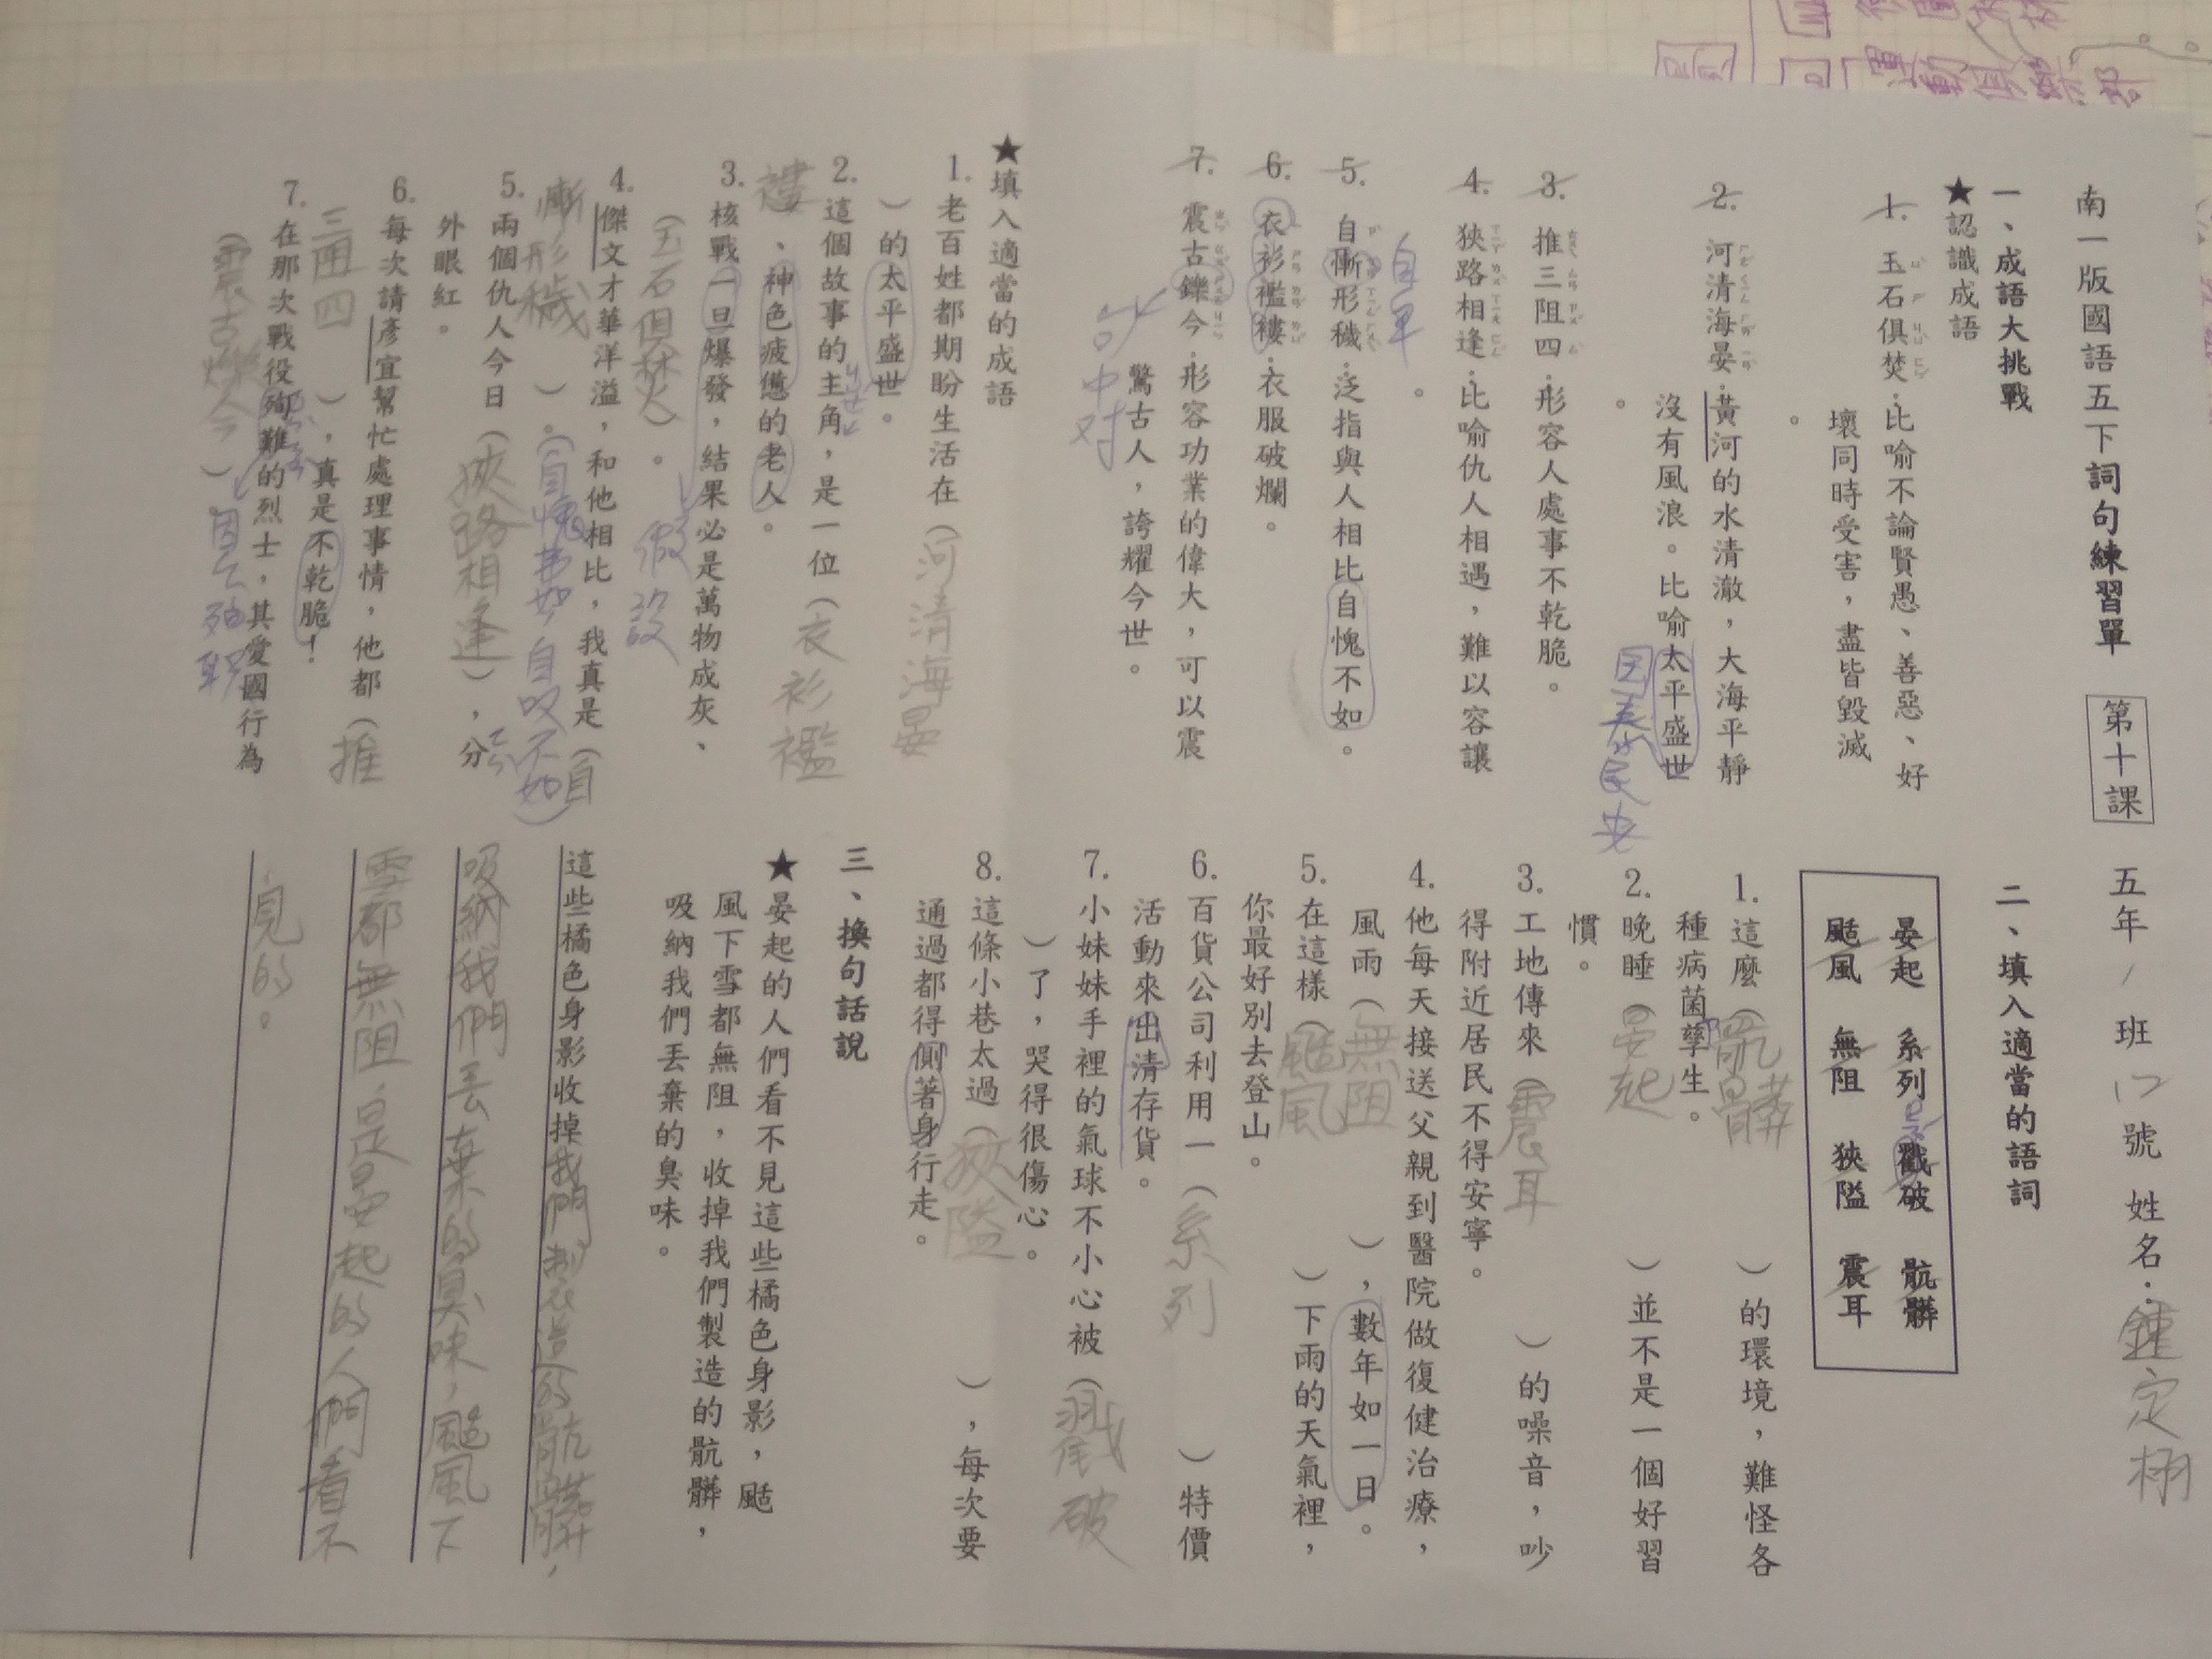 南一版國語五下詞句練習單 第十課 五年1班 號 姓名：鍾定栩
一、成語大挑戰
★認識成語
1. 玉石俱焚：比喻不論賢愚、善惡、好
壞同時受害，盡皆毀滅
。
2. 河清海晏：黃河的水清澈，大海平靜
沒有風浪。比喻太平盛世
。
國泰民安
3. 推三阻四：形容人處事不乾脆。
4. 狹路相逢：比喻仇人相遇，難以容讓
。
5. 自慚形穢：泛指與人相比自愧不如。
自卑
6. 衣衫襤褸：衣服破爛。
7. 震古鑠今：形容功業的偉大，可以震
驚古人，誇耀今世。
★填入適當的成語
1. 老百姓都期盼生活在（河清海晏
）的太平盛世。
2. 這個故事的主角，是一位（衣衫襤
褸、神色疲憊的老人。
3. 核戰一旦爆發，結果必是萬物成灰、
（玉石俱焚）。
假設
4. 傑文才華洋溢，和他相比，我真是（自
慚形穢）。（自愧弗如，自叹不如）
5. 兩個仇人今日（狹路相逢），分
外眼紅。
6. 每次請彥宜幫忙處理事情，他都（推
三阻四），真是不乾脆！
7. 在那次戰役殉難的烈士，其愛國行為
（震古爍今）。
二、填入適當的語詞
晏起 系列 戳破 骯髒
颳風 無阻 狹隘 震耳
1. 這麼（骯髒）的環境，難怪各
種病菌孳生。
2. 晚睡（晏起）並不是一個好習
慣。
3. 工地傳來（震耳）的噪音，吵
得附近居民不得安寧。
4. 他每天接送父親到醫院做復健治療，
風雨（無阻），數年如一日。
5. 在這樣（颳風）下雨的天氣裡，
你最好別去登山。
6. 百貨公司利用一（系列）特價
活動來出清存貨。
7. 小妹妹手裡的氣球不小心被（戳破
）了，哭得很傷心。
8. 這條小巷太過（狹隘），每次要
通過都得側著身行走。
三、換句話說
★晏起的人們看不見這些橘色身影，颳
風下雪都無阻，收掉我們製造的骯髒，
吸納我們丟棄的臭味。
這些橘色身影收掉我們製造的骯髒，
吸納我們丟棄的臭味，颳風下
雪都無阻，是晏起的人們看不
見的。